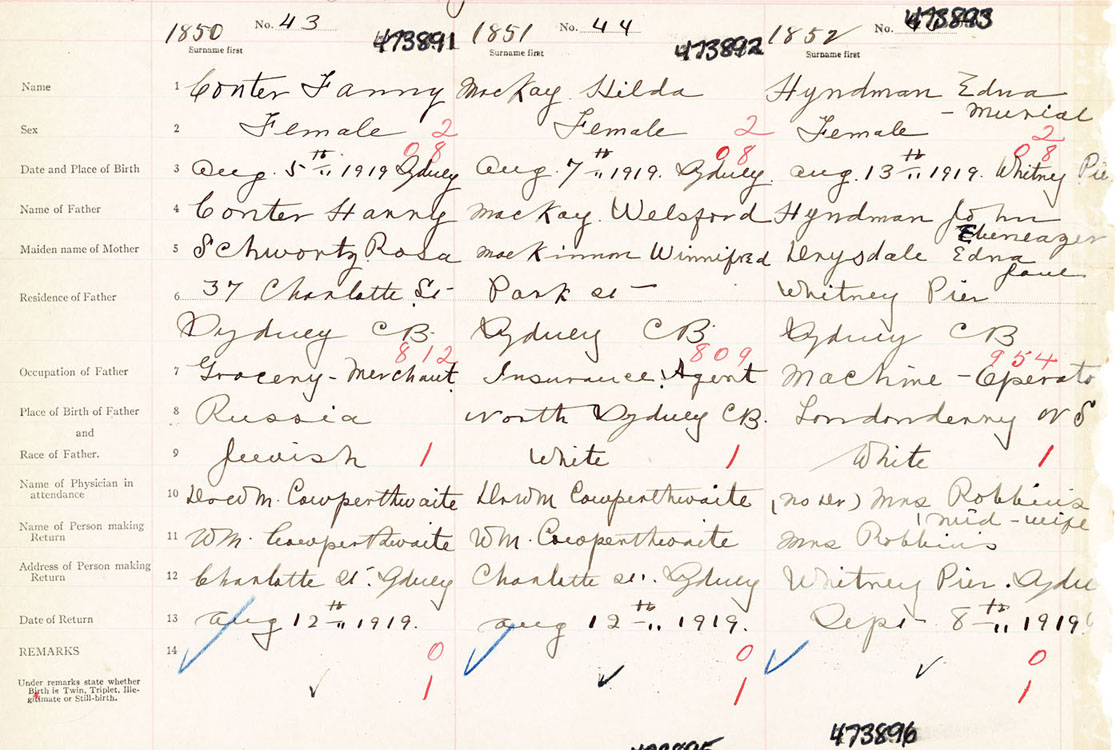 1850 No. 43 473891 1851 No. 44 473892 1852 No. 473893
Surname first Surname first Surname first
Name 1 Conter Fanny MacKay Hilda Hyndman Edna
- Murial
Sex 2 Female 2 Female 2 Female 2
08 08 08
Date and Place of Birth 3 Aug. 5th 1919 Sydney Aug. 7th 1919. Sydney. Aug. 13th 1919. Whitney Pie
Name of Father 4 Conter Harry MacKay. Welsford Hyndman John
Ebeneazer
Maiden name of Mother 5 Schwortz Rosa MacKinnon Winnifred Drysdale Edna
Jane
Residence of Father 6 37 Charlotte St Park St Whitney Pier
Sydney CB. Sydney CB. Sydney CB
812 809 954
Occupation of Father 7 Grocery - Merchant Insurance Agent Machine - Operato
Place of Birth of Father 8 Russia North Sydney CB. Londonderry N S
and
Race of Father. 9 Jewish 1 White 1 White 1
Name of Physician in
attendance 10 Dr Wm. Cowperthwaite Dr Wm Cowperthwaite (no Dr) Mrs Robbins
mid-wife
Name of Person making
Return 11 Wm. Cowperthwaite Wm. Cowperthwaite Mrs Robbins
Address of Person making
Return 12 Charlotte St. Sydney Charlotte St. Sydney Whitney Pier. Sydn
Date of Return 13 Aug 12th 1919. Aug 12th 1919. Sept 8th 1919
REMARKS 14 0 0 0
Under remarks state whether
Birth is Twin, Triplet, Ille-
gitimate or Still-birth. 1 1 1
473896